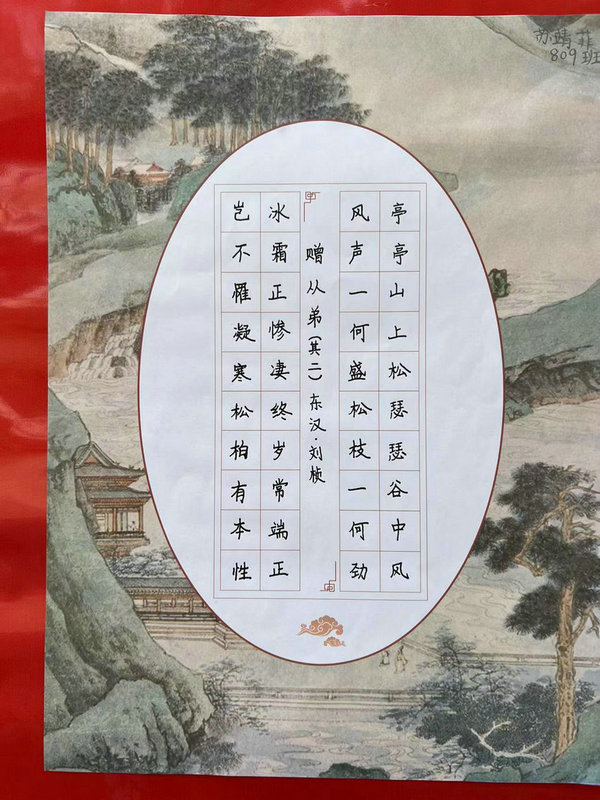 苏靖菲
809班
亭亭山上松瑟瑟谷中风
风声一何盛松枝一何劲
赠从弟(其二)东汉·刘桢
冰霜正惨凄终岁常端正
岂不罹凝寒松柏有本性